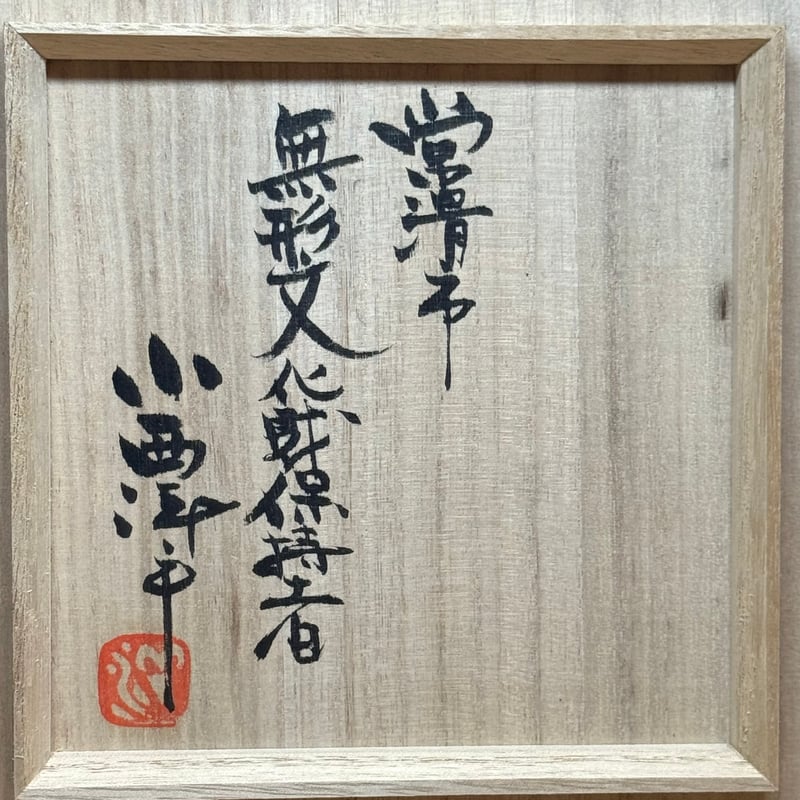 常滑市
無形文化財保持者
小西洋平